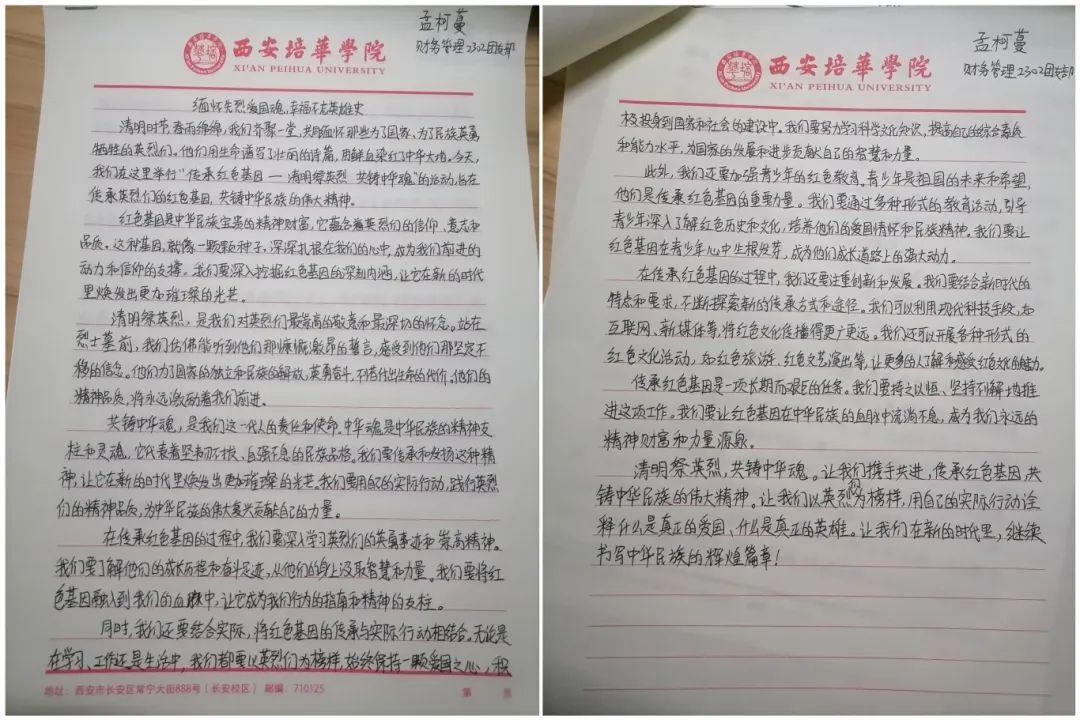 孟柯蔓
财务管理2302团支部
西安培華學院
XI'AN PEIHUA UNIVERSITY
缅怀先烈爱国魂,幸福不忘英雄史
清明时节,春雨绵绵,我们齐聚一堂,共同缅怀那些为了国家、为了民族英勇
牺牲的英烈们。他们用生命谱写了壮丽的诗篇,用鲜血染红了中华大地。今天,
我们在这里举行“传承红色基因——清明祭英烈 共铸中华魂”的活动,旨在
传承英烈们的红色基因,共铸中华民族的伟大精神。
红色基因是中华民族宝贵的精神财富,它蕴含着英烈们的信仰、意志和
品质。这种基因,就像一颗颗种子,深深扎根在我们的心中,成为我们前进的
动力和信仰的支撑。我们要深入挖掘红色基因的深刻内涵,让它在新的时代
里焕发出更加璀璨的光芒。
清明祭英烈,是我们对英烈们最崇高的敬意和最深切的怀念。站在
烈士墓前,我们仿佛能听到他们那慷慨激昂的誓言,感受到他们那坚定不
移的信念。他们为国家的独立和民族的解放,英勇奋斗,不惜付出生命的代价。他们的
精神品质,将永远激励着我们前进。
共铸中华魂,是我们这一代人的责任和使命。中华魂是中华民族的精神支
柱和灵魂,它代表着坚韧不拔、自强不息的民族品格。我们要传承和发扬这种精
神,让它在新的时代里焕发出更加璀璨的光芒。我们要用自己的实际行动,践行英烈
们的精神品质,为中华民族的伟大复兴贡献自己的力量。
在传承红色基因的过程中,我们要深入学习英烈们的英勇事迹和崇高精神。
我们要了解他们的成长历程和奋斗足迹,从他们的身上汲取智慧和力量。我们要将红
色基因融入到我们的血脉中,让它成为我们行为的指南和精神的支柱。
同时,我们还要结合实际,将红色基因的传承与实际行动相结合。无论是
在学习、工作还是生活中,我们都要以英烈们为榜样,始终保持一颗爱国之心,积
地址:西安市长安区常宁大街888号(长安校区) 邮编:710125 第 页
孟柯蔓
财务管理2302团支部
西安培華學院
XI'AN PEIHUA UNIVERSITY
极投身到国家和社会的建设中。我们要努力学习科学文化知识,提高自己的综合素质
和能力水平,为国家的发展和进步贡献自己的智慧和力量。
此外,我们还要加强青少年的红色教育。青少年是祖国的未来和希望,
他们是传承红色基因的重要力量。我们要通过多种形式的教育活动,引导
青少年深入了解红色历史和文化,培养他们的爱国情怀和民族精神。我们要让
红色基因在青少年心中生根发芽,成为他们成长道路上的强大动力。
在传承红色基因的过程中,我们还要注重创新和发展。我们要结合新时代的
特点和要求,不断探索新的传承方式和途径。我们可以利用现代科技手段,如
互联网、新媒体等,将红色文化传播得更广更远。我们还可以开展各种形式的
红色文化活动,如红色旅游、红色文艺演出等,让更多的人了解和感受红色文化的魅力。
传承红色基因是一项长期而艰巨的任务。我们要持之以恒、坚持不懈地推
进这项工作。我们要让红色基因在中华民族的血脉中流淌不息,成为我们永远的
精神财富和力量源泉。
清明祭英烈,共铸中华魂。让我们携手共进,传承红色基因,共
铸中华民族的伟大精神。让我们以英烈们为榜样,用自己的实际行动诠
释什么是真正的爱国、什么是真正的英雄。让我们在新的时代里,继续
书写中华民族的辉煌篇章!